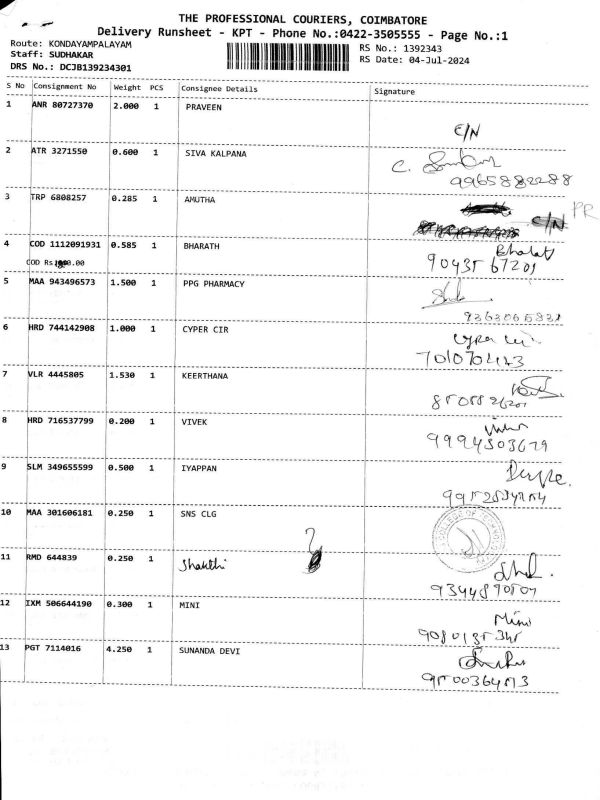 THE PROFESSIONAL COURIERS, COIMBATORE
Delivery Runsheet - KPT - Phone No.:0422-3505555 - Page No.:1
Route: KONDAYAMPALAYAM RS No.: 1392343
Staff: SUDHAKAR RS Date: 04-Jul-2024
DRS No.: DCJB139234301
S No Consignment No Weight PCS Consignee Details Signature
1 ANR 80727370 2.000 1 PRAVEEN
C/N
2 ATR 3271550 0.600 1 SIVA KALPANA
C.
9965882288
3 TRP 6808257 0.285 1 AMUTHA
C/N PR
4 COD 1112091931 0.585 1 BHARATH Bharat
COD Rs 9043567201
5 MAA 943496573 1.500 1 PPG PHARMACY
9363065831
6 HRD 744142908 1.000 1 CYPER CIR
7 VLR 4445805 1.530 1 KEERTHANA
8 HRD 716537799 0.200 1 VIVEK
9994503679
9 SLM 349655599 0.500 1 IYAPPAN
10 MAA 301606181 0.250 1 SNS CLG
11 RMD 644839 0.250 1 Shakthi
12 IXM 506644190 0.300 1 MINI
Mini
13 PGT 7114016 4.250 1 SUNANDA DEVI